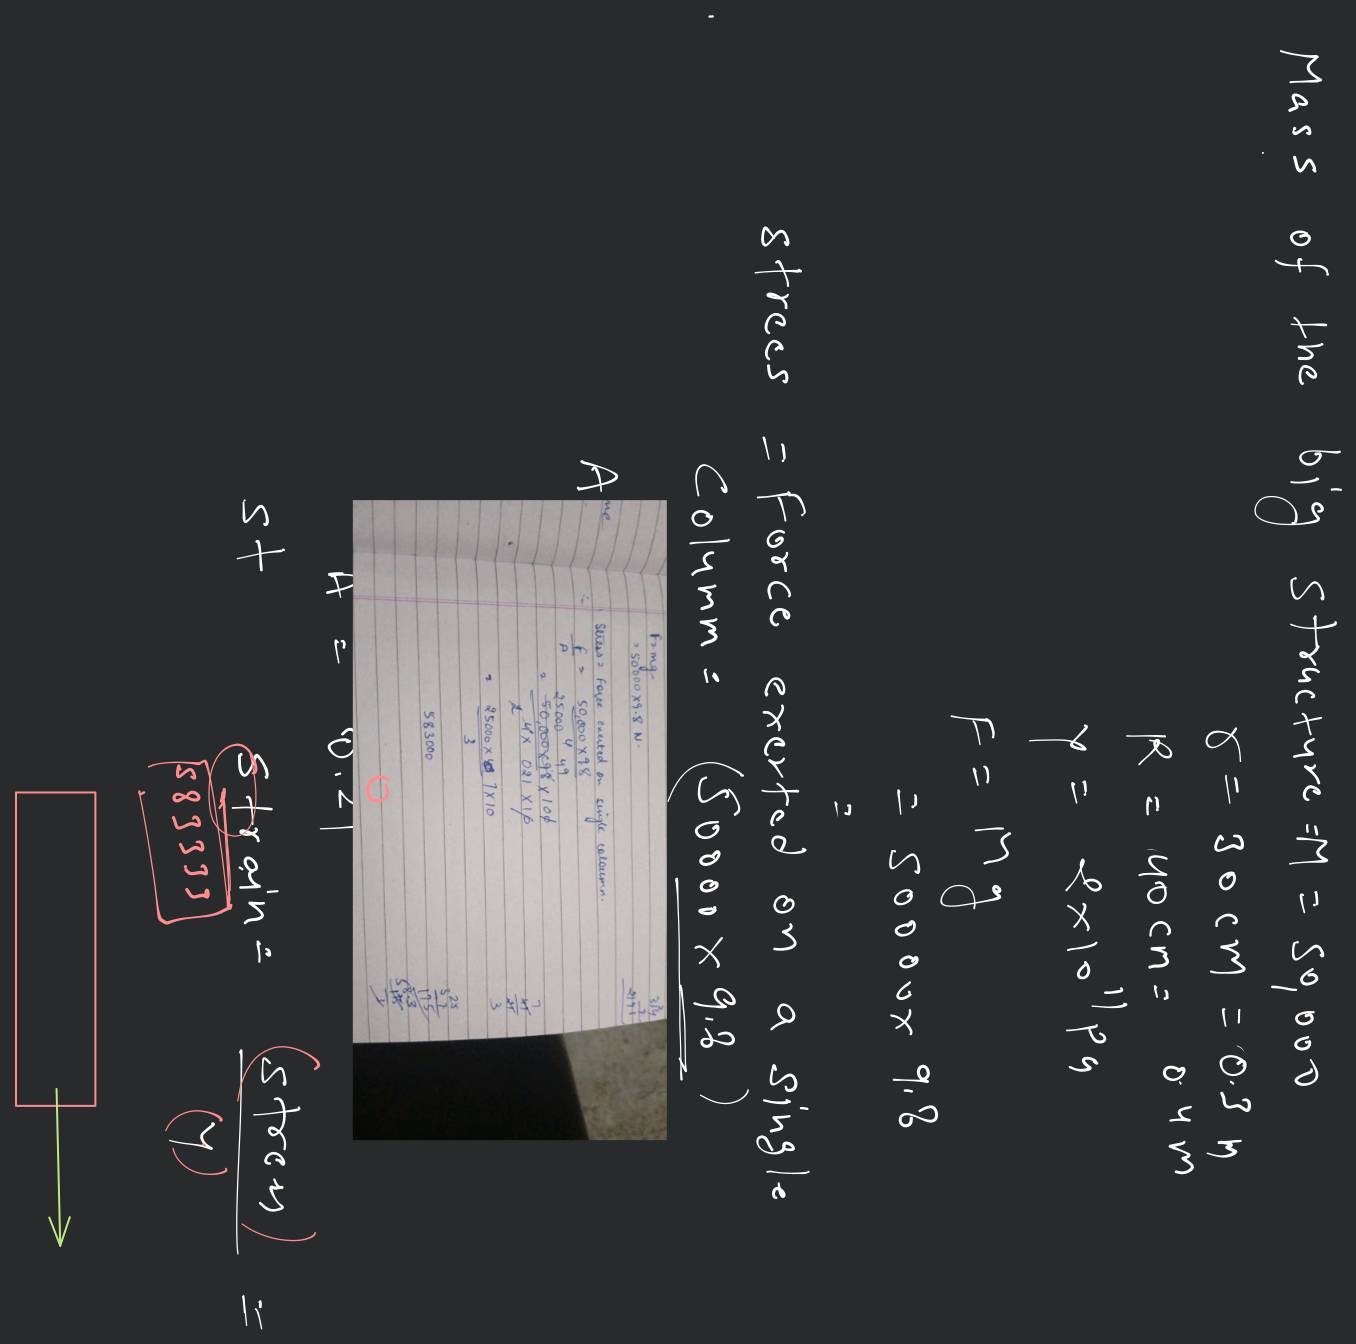 Mass of the big structure = M = 50,000
r = 30 cm = 0.3 m
R = 40 cm = 0.4 m
Y = 2x10^11 Pa
F = mg
= 50000 x 9.8
=
Strees = Force exerted on a single
Column = (50000 x 9.8)
A
F=mg.
= 50000 x 9.8 N.
∴ Stress = Force exerted on single coloumn.
F/A = 50,000 x 9.8
25000 4 49
= 50,000 x 98 x 100
4 x 021 x 10
= 25000 x 7 x 10
3
583000
A = 0.21
St
Strain = Stress =
Y
583333